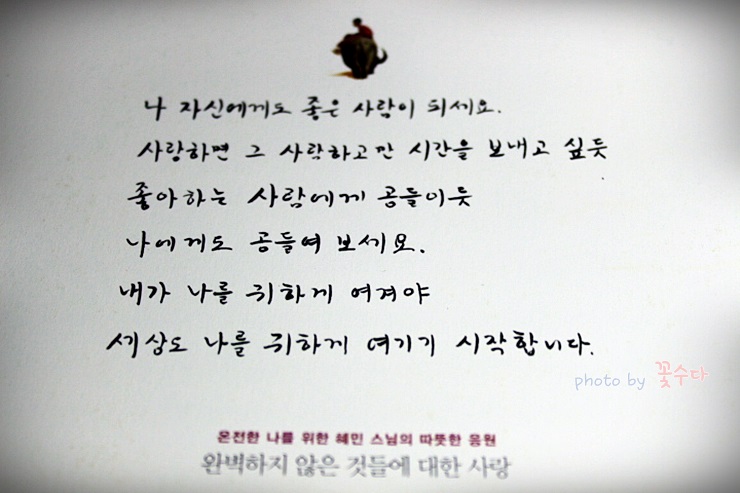 나 자신에게도 좋은 사람이 되세요.
사랑하면 그 사람하고만 시간을 보내고 싶듯
좋아하는 사람에게 공들이듯
나에게도 공들여 보세요.
내가 나를 귀하게 여겨야
세상도 나를 귀하게 여기기 시작합니다.
photo by 꽃수다
온전한 나를 위한 혜민 스님의 따뜻한 응원
완벽하지 않은 것들에 대한 사랑